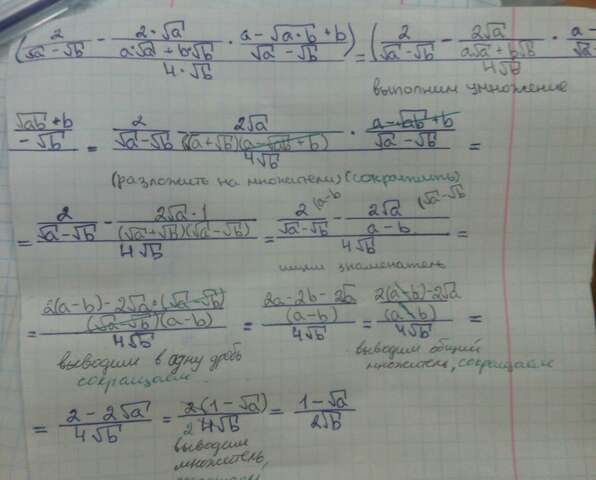 (2/(√a-√b) - 2·√a/(a·√a+b·√b) · (a-√a·b+b)/(√a-√b))/(4·√b) = (2/(√a-√b) - 2√a/(a√a+b√b) · a-
4√b
выполним умножение
√ab+b/-√b = 2/(√a-√b) 2√a/((√a+√b)(a-√ab+b)) · (a-√ab+b)/(√a-√b) =
4√b
(разложить на множители) (сократить)
= (2/(√a-√b) - 2√a·1/((√a+√b)(√a-√b)))/(4√b) = (2/(√a-√b) (a-b - 2√a/(a-b) (√a-√b)/(4√b) =
ищем знаменатель
= ((2(a-b)-2√a·(√a-√b))/((√a-√b)(a-b)))/(4√b) = ((2a-2b-2√a)/(a-b))/(4√b) = ((2(a-b)-2√a)/(a-b))/(4√b) =
выводим в одну дробь
сокращаем
выводим общий
множитель, сокращаем
= (2-2√a)/(4√b) = 2(1-√a)/(2 4√b) = (1-√a)/(2√b)
выводим
множитель,